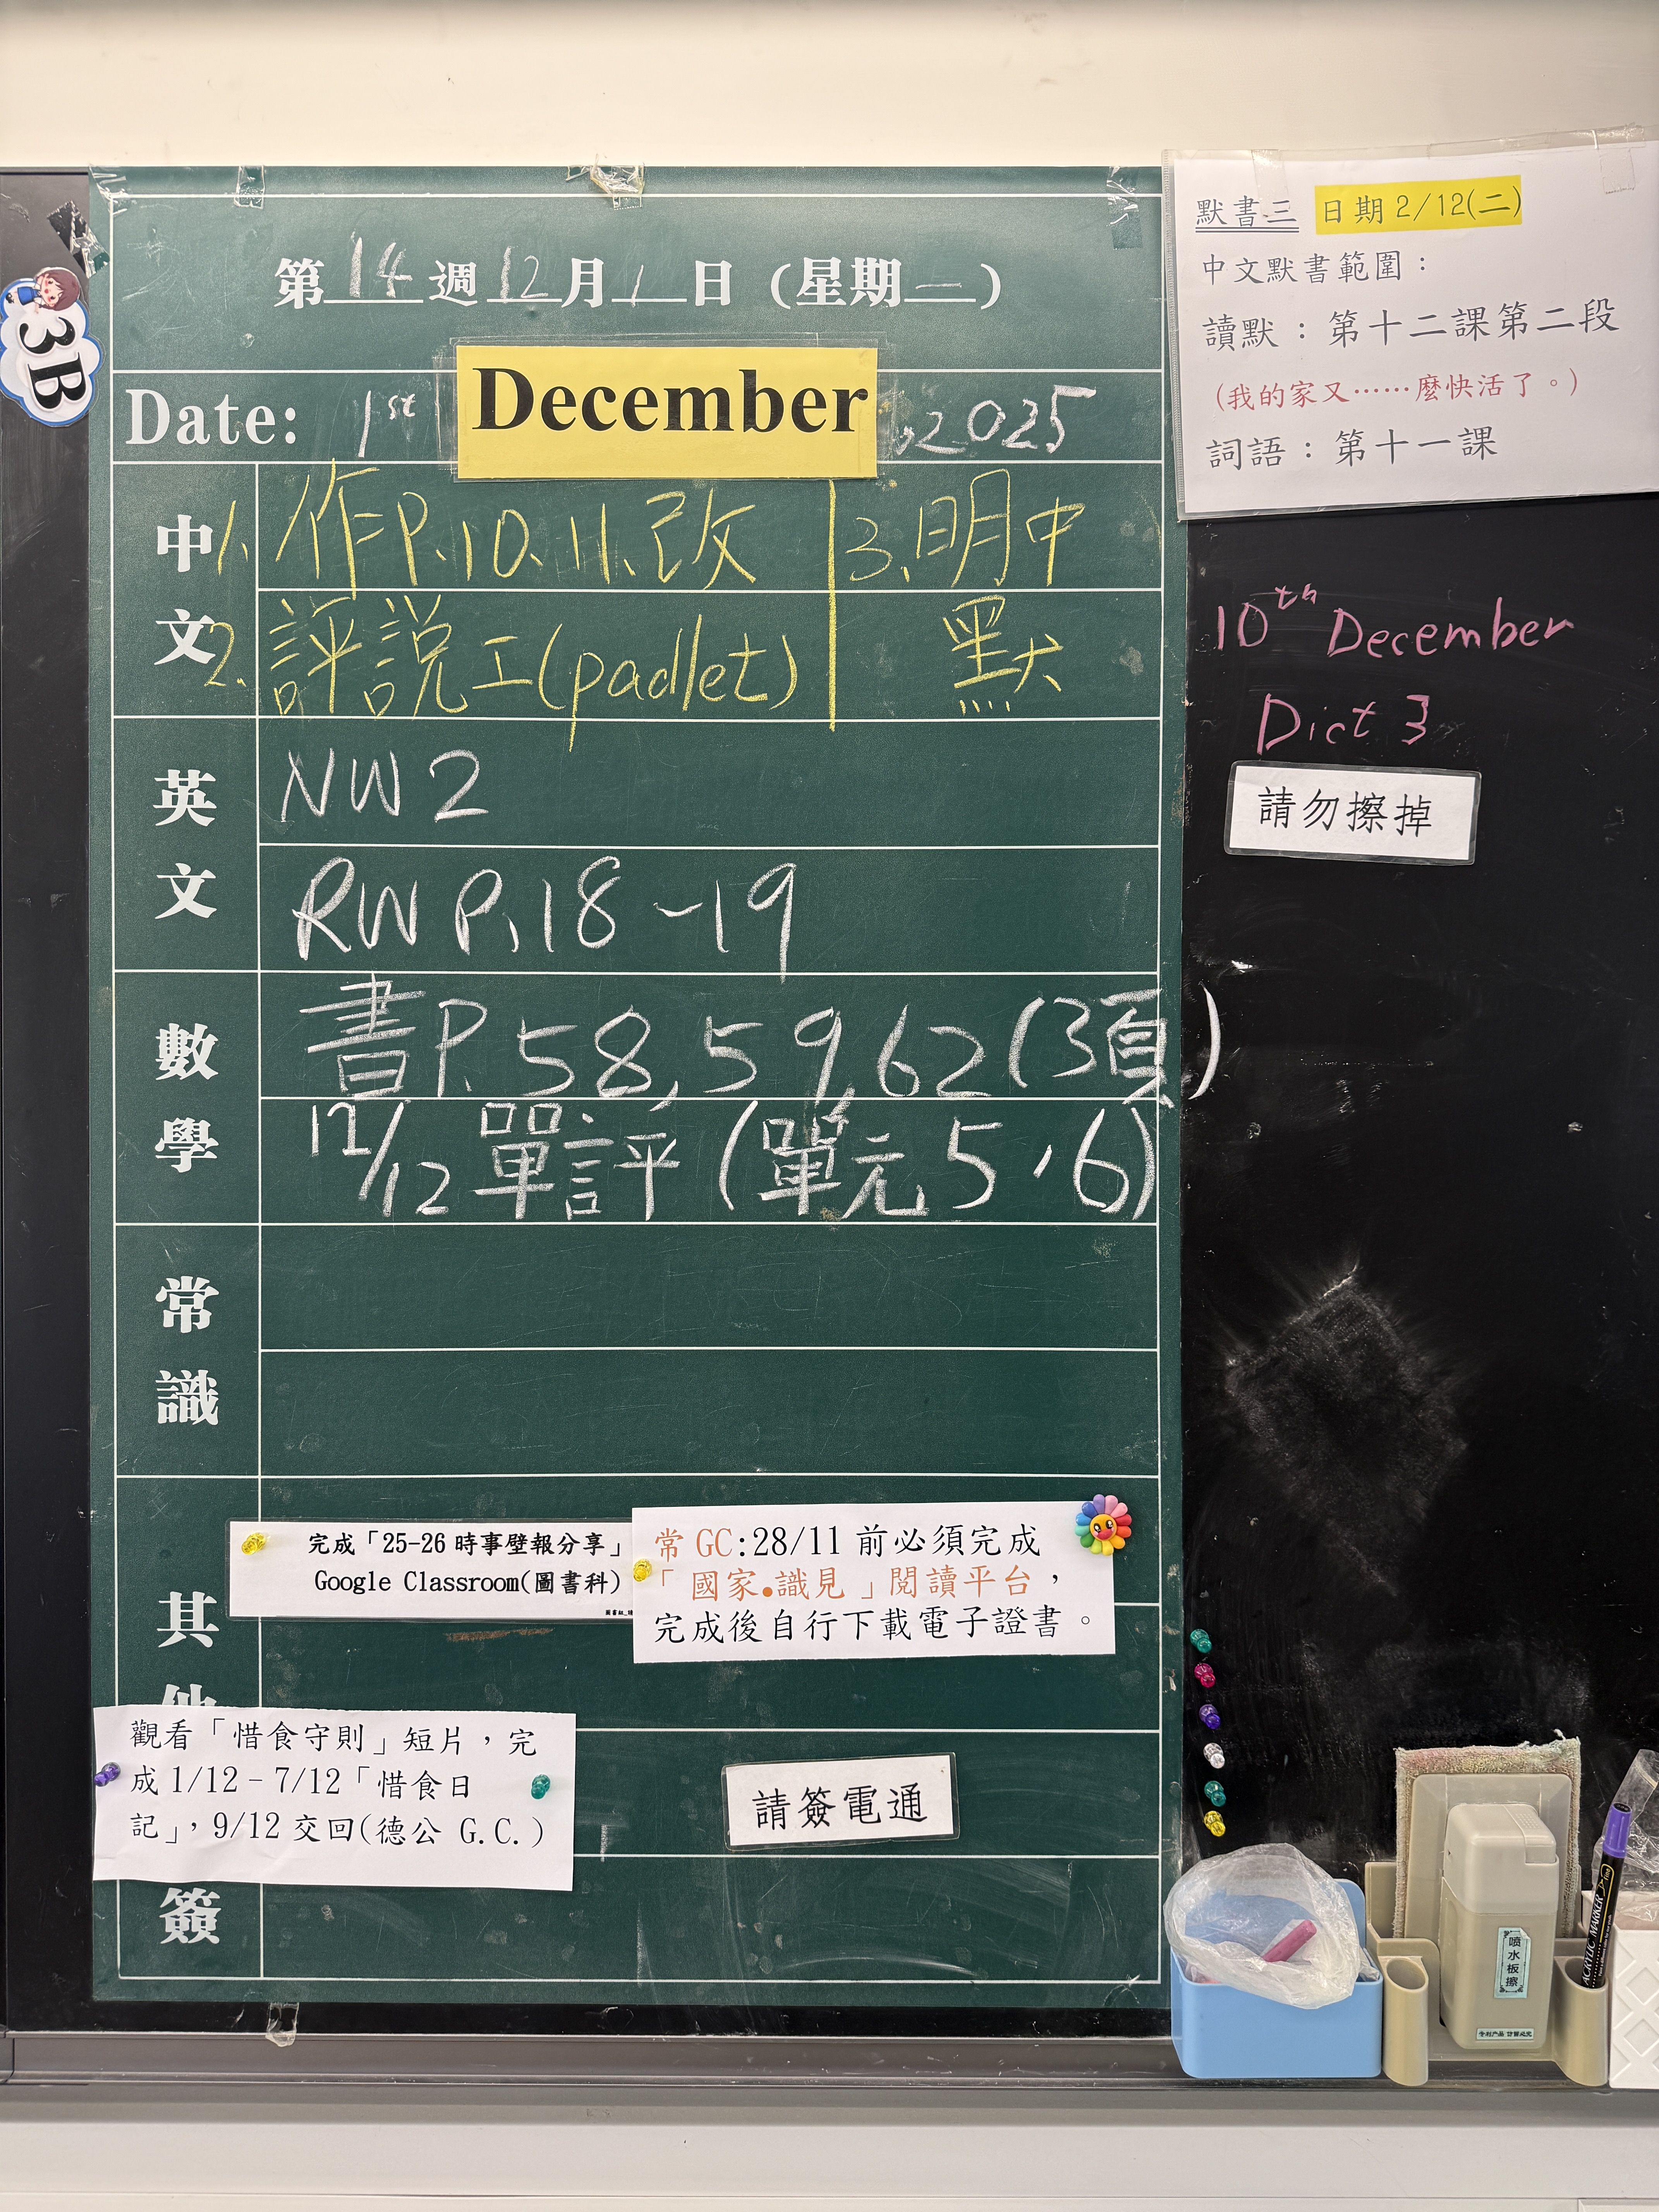 第14週12月1日（星期一）
3B
Date: 1st December, 2025
中文
1. 作P.10、11、改
2. 評説工(padlet)
3. 明中
默
英文
NW 2
RW P.18-19
數學
書P.58, 59, 62(3頁)
12/12 單評(單元5，6)
常識
其他
完成「25-26 時事壁報分享」
Google Classroom(圖書科)
常 GC:28/11 前必須完成
「國家•識見」閱讀平台，
完成後自行下載電子證書。
觀看「惜食守則」短片，完
成1/12-7/12「惜食日
記」，9/12 交回(德公 G.C.)
請簽電通
簽
默書三 日期2/12(二)
中文默書範圍：
讀默：第十二課第二段
（我的家又……麼快活了。）
詞語：第十一課
10th December
Dict 3
請勿擦掉
喷水板擦
ACRYLIC MARKER